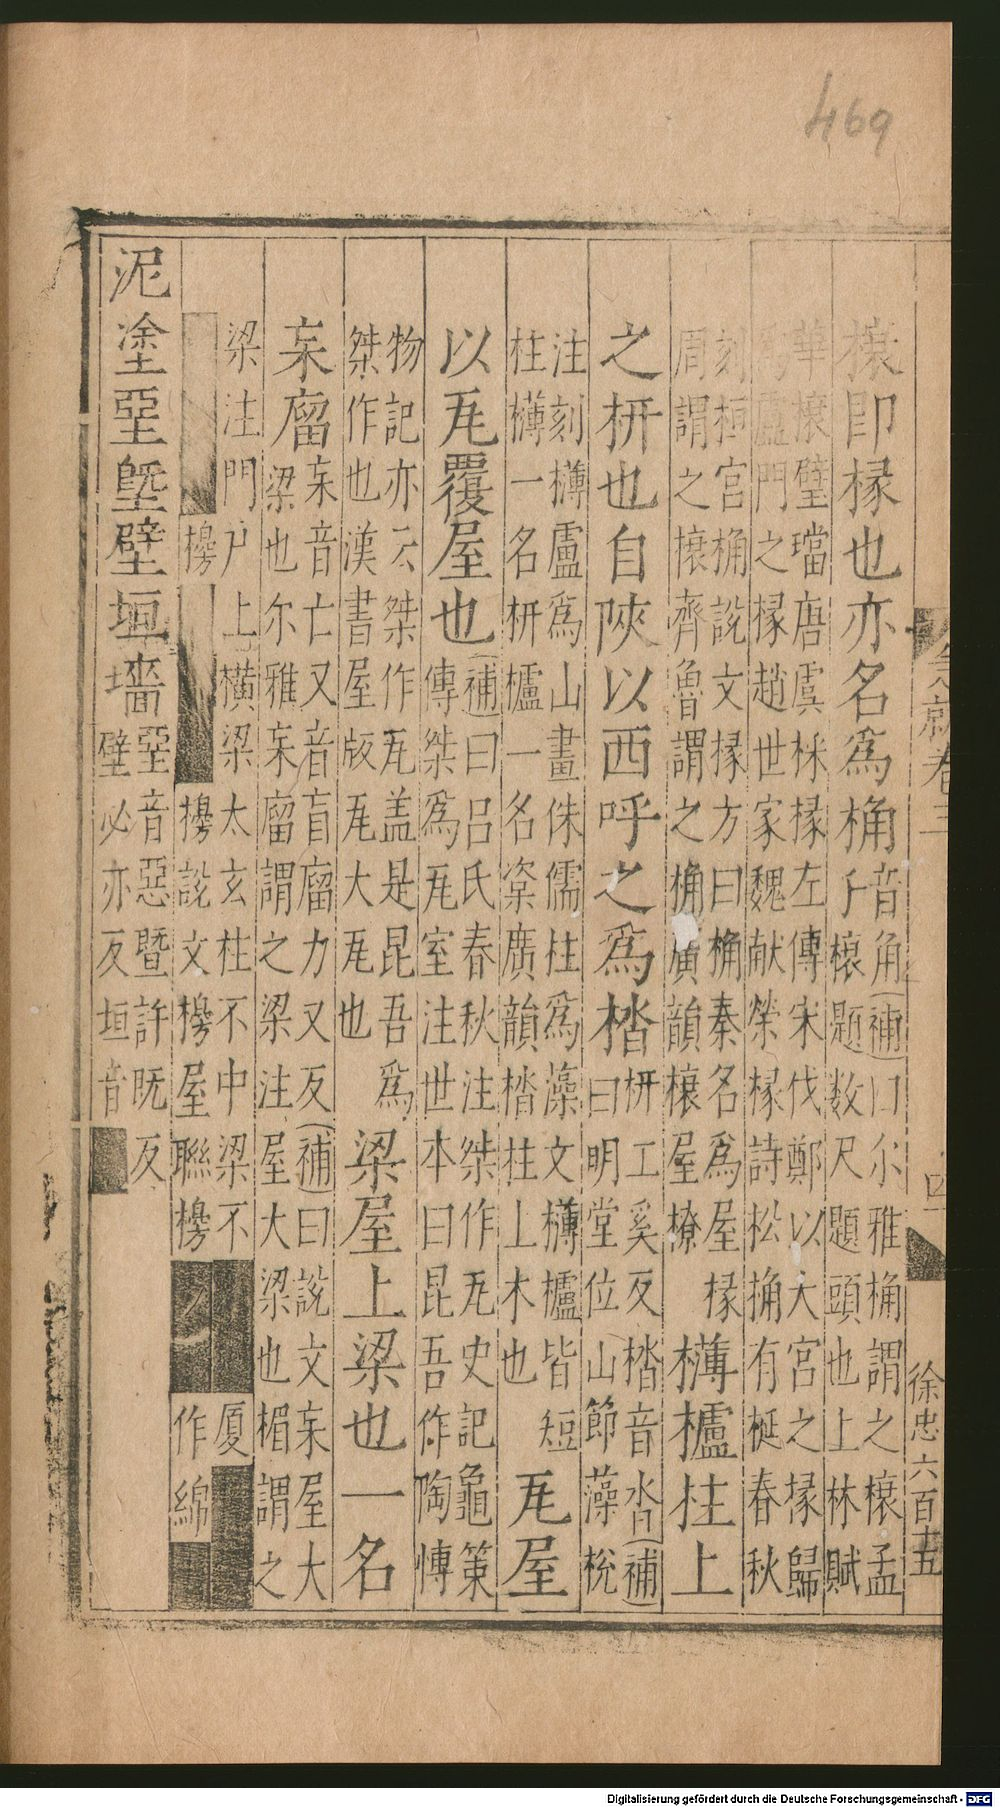 469
榱即椽也亦名爲桷音角(補)曰尔雅桷謂之榱孟
子榱題数尺題頭也上林賦
華榱璧璫唐虞林椽左傳宋伐鄭以大宮之椽歸
爲盧門之椽趙世家魏献榮椽詩松桷有梴春秋
刻桓宮桷說文椽方曰桷秦名爲屋椽
周謂之榱齊魯謂之桷廣韻榱屋橑
欂櫨柱上
之枅也自陝以西呼之爲㭼
枅工奚反㭼音沓(補
曰明堂位山節藻梲
注刻欂盧爲山畫侏儒柱爲藻文欂櫨皆短
柱欂一名枅櫨一名楶廣韻㭼柱上木也
瓦屋
以瓦覆屋也
(補)曰吕氏春秋注桀作瓦史記龜策
傳桀爲瓦室注世本曰昆吾作陶慱
物記亦云桀作瓦盖是昆吾爲
桀作也漢書屋版瓦大瓦也
梁屋上梁也一名
㝱廇
㝱音亡又音盲廇力又反(補)曰說文㝱屋大
梁也尔雅㝱廇謂之梁注屋大梁也楣謂之
梁注門戸上横梁太玄柱不中梁不厦
榜 榜說文榜屋聯榜 作綿
泥塗堊塈壁垣墻
堊音惡曁許既反
壁必亦反垣音
急就卷三
四
徐忠六百十五
Digitalisierung gefördert durch die Deutsche Forschungsgemeinschaft - DFG